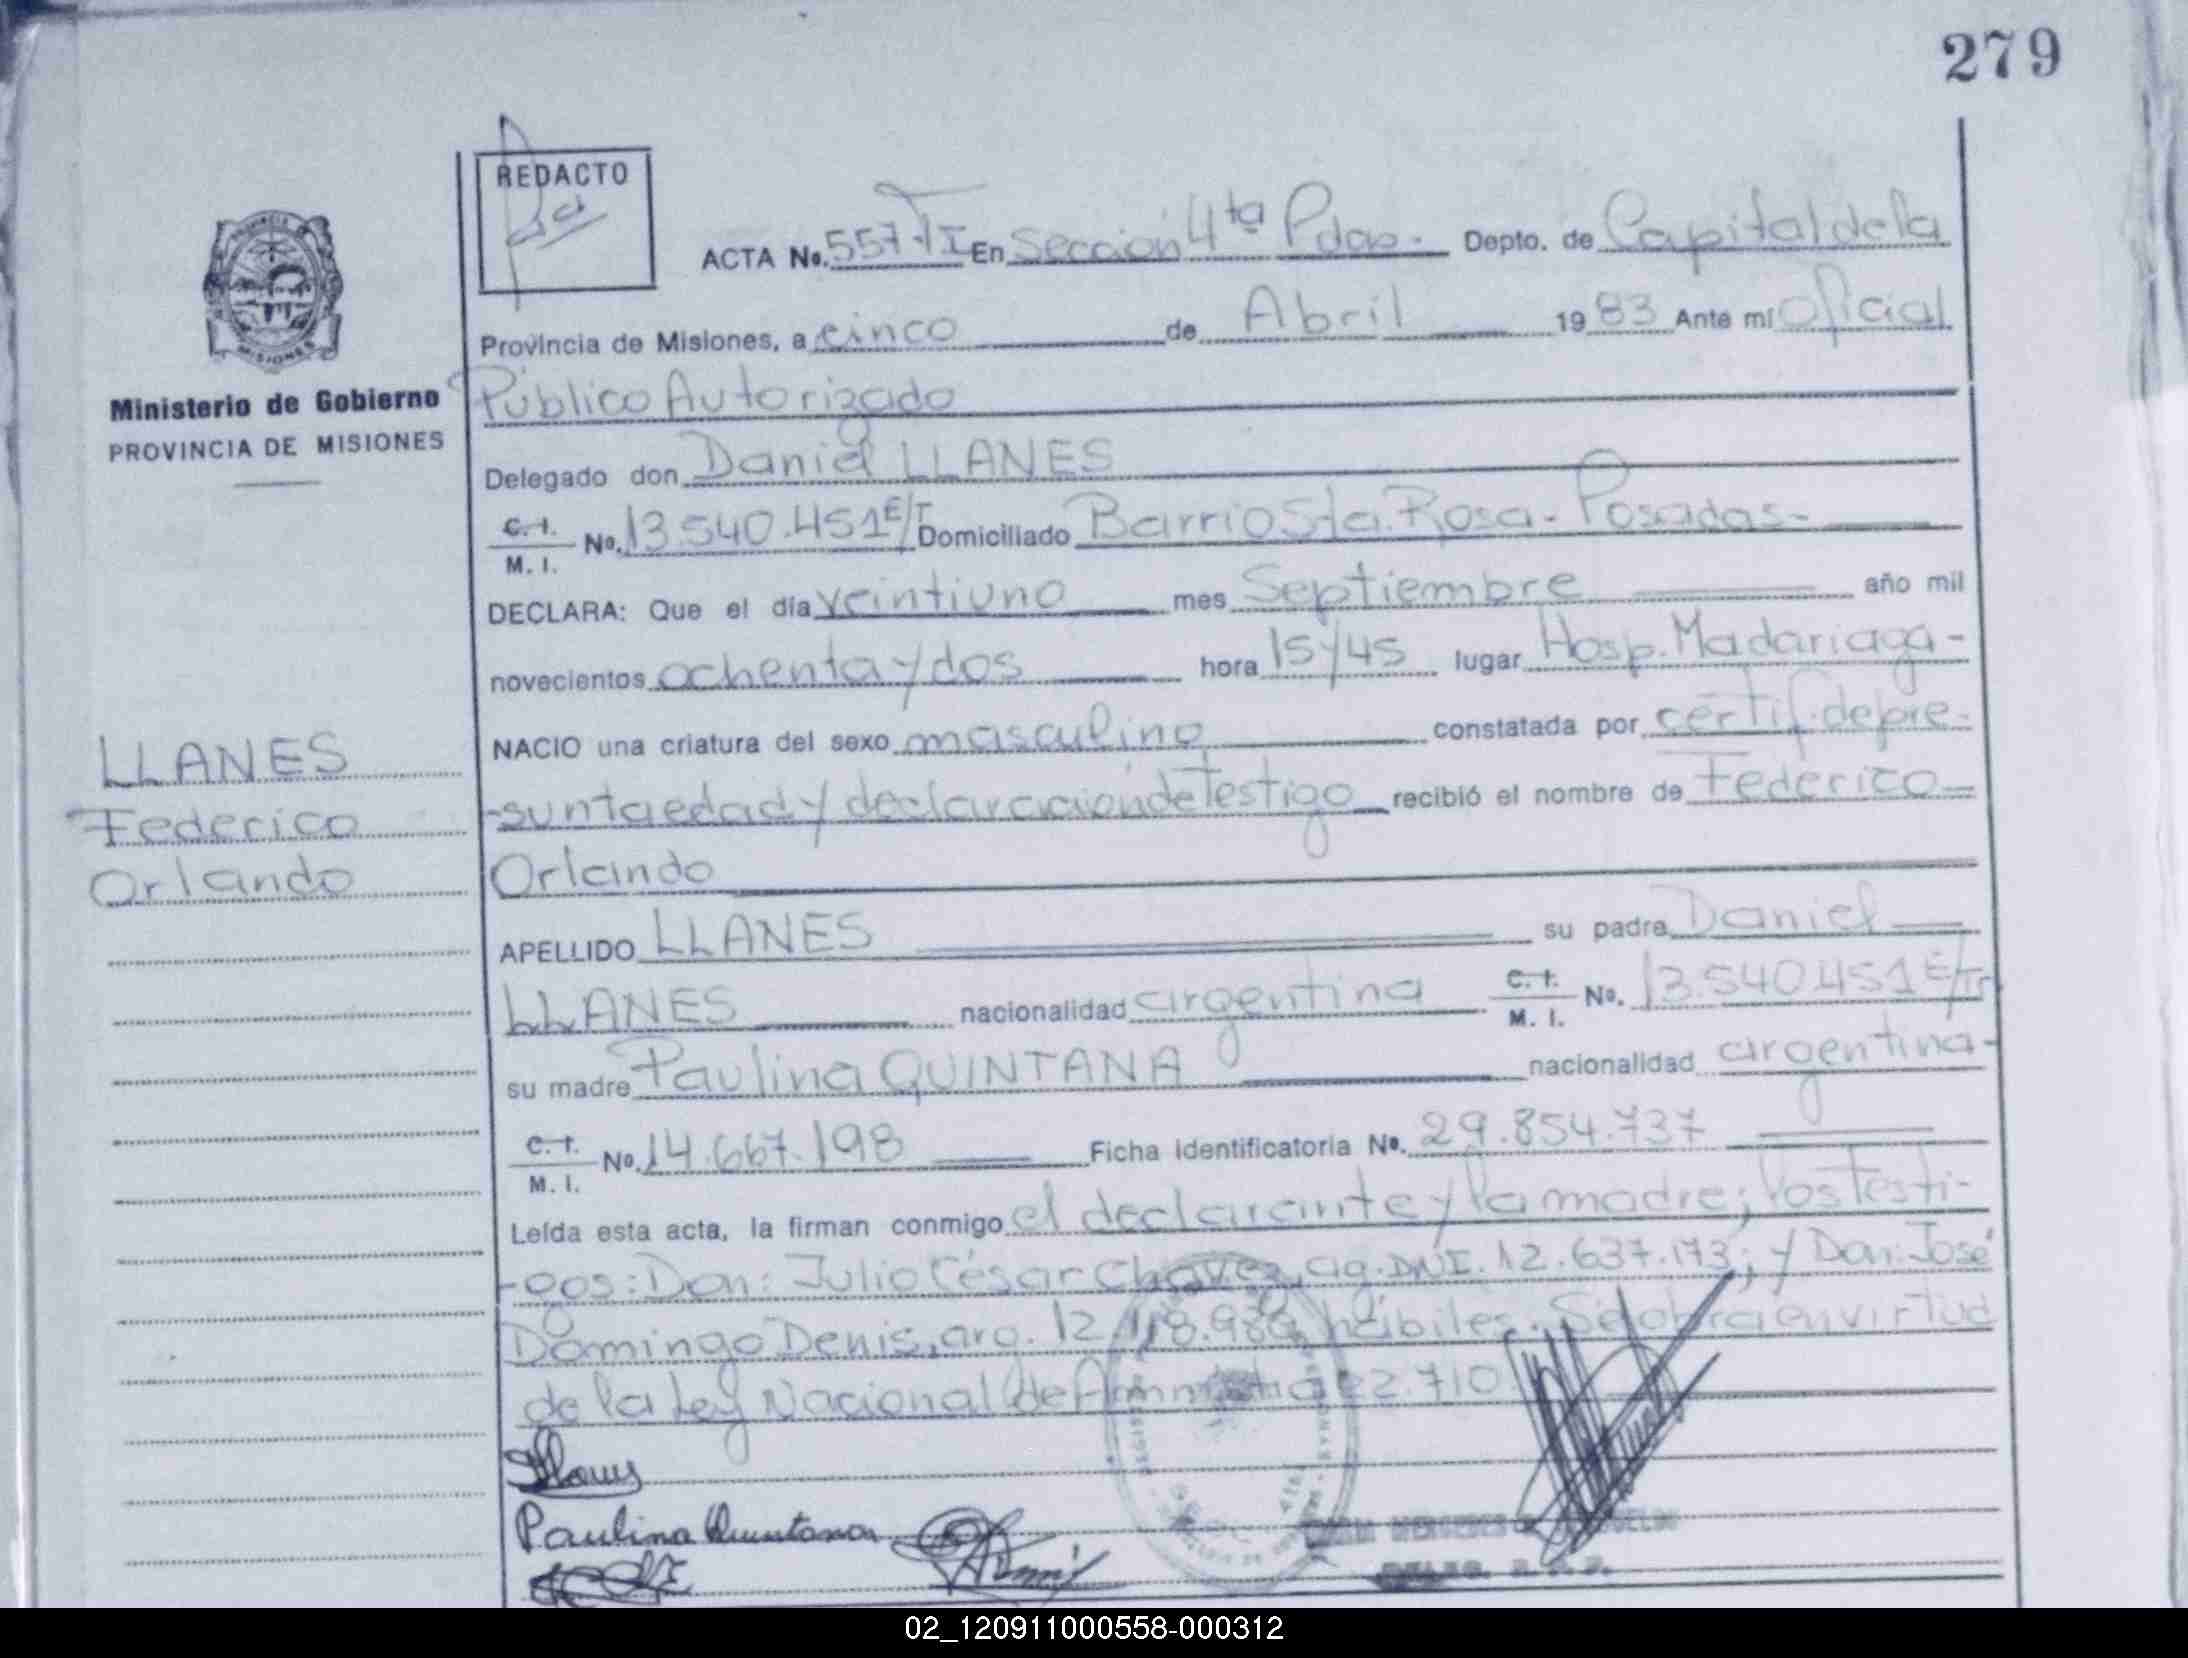 279
REDACTO
ACTA No. 557-TI En Sección 4ta Pdas.- Depto. de Capital de la
Provincia de Misiones, a cinco de Abril 1983 Ante mí Oficial
Público Autorizado
Ministerio de Gobierno
PROVINCIA DE MISIONES
Delegado don Daniel LLANES
C. I. / M. I. No. 13.540.451 E/T Domiciliado Barrio Sta. Rosa - Posadas-
DECLARA: Que el día veintiuno mes Septiembre año mil
novecientos ochenta y dos hora 15 y 45 lugar Hosp. Madariaga-
NACIO una criatura del sexo masculino constatada por certif. de pre-
-sunta edad y declaración de Testigo recibió el nombre de Federico
Orlando
LLANES
Federico
Orlando
APELLIDO LLANES su padre Daniel
LLANES nacionalidad argentina C. I. / M. I. No. 13.540.451 E/Tr
su madre Paulina QUINTANA nacionalidad argentina-
C. I. / M. I. No. 14.667.198 Ficha identificatoria No. 29.854.737
Leída esta acta, la firman conmigo el declarante y la madre; los Testi-
-gos: Don: Julio César Chavez, ag. DNI. 12.637.173; y Don: José
Domingo Denis, arg. 12.118.98 hábiles. Se labra en virtud
de la Ley Nacional de Amnistia 22.710.
Llanes
Paulina Quintana
02_120911000558-000312